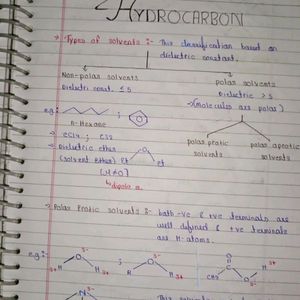 HYDROCARBON
→ Types of solvents :- This classification based on
dielectric constant.
Non-polar solvents
Dielectric const. ≤ 5
polar solvents
Dielectric > 5
(molecules are polar)
e.g:-
;
n-Hexane
→ CCl4 ; CS2
→ Dielectric ether
(solvent ether) Et O Et
(μ≠0)
↳ dipole m.
polar protic
solvents
polar aprotic
solvents
→ Polar Protic solvents :- both -ve & +ve terminals are
well defined & +ve terminals
are H-atoms.
e.g:-
δ-
O
H H
δ+
;
δ-
O
R H
δ+
;
O
C
CH3 O
δ-
H
δ+
δ-
N
This solvents